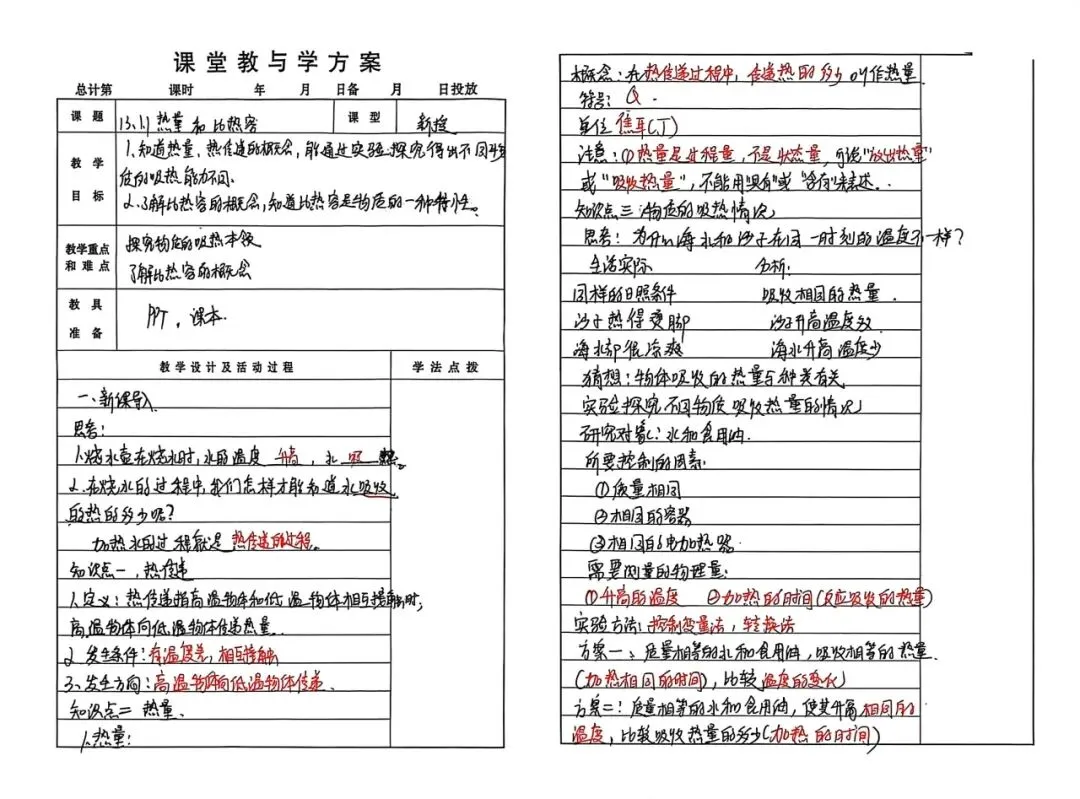 课堂教与学方案
总计第 课时 年 月 日备 月 日投放
课题 13.1.1 热量和比热容 课型 新授
教学目标 1.知道热量、热传递的概念,能通过实验探究得出不同物
质的吸热能力不同.
2.了解比热容的概念,知道比热容是物质的一种特性。
教学重点和难点 探究物质的吸热本领
了解比热容的概念
教具准备 PPT,课本.
教学设计及活动过程 学法点拨
一、新课导入
思考:
1.烧水壶在烧水时,水的温度 升高,水 吸 热。
2.在烧水的过程中,我们怎样才能知道水吸收
的热的多少呢?
加热水的过程就是热传递的过程。
知识点一,热传递
1.定义:热传递指高温物体和低温物体相互接触时,
高温物体向低温物体传递热量.
2.发生条件:有温度差,相互接触
3、发生方向:高温物体向低温物体传递.
知识点二 热量.
1.热量:
概念:在热传递过程中,传递热的多少叫作热量
符号:Q.
单位 焦耳(J)
注意:①热量是过程量,不是状态量,可说"放出热量"
或"吸收热量",不能用"具有"或"含有"来表述.
知识点三 物质的吸热情况
思考:为什么海水和沙子在同一时刻的温度不一样?
生活实际 分析:
同样的日照条件 吸收相同的热量.
沙子热得烫脚 沙子升高温度多
海水却很凉爽 海水升高温度少
猜想:物体吸收的热量与种类有关
实验探究不同物质吸收热量的情况
研究对象:水和食用油.
所要控制的因素:
①质量相同
②相同的容器
③相同的电加热器.
需要测量的物理量:
①升高的温度 ②加热的时间(反应吸收的热量)
实验方法:控制变量法,转换法
方案一、质量相等的水和食用油,吸收相等的热量.
(加热相同的时间),比较温度的变化)
方案二:质量相等的水和食用油,使其升高相同的
温度,比较吸收热量的多少(加热的时间)